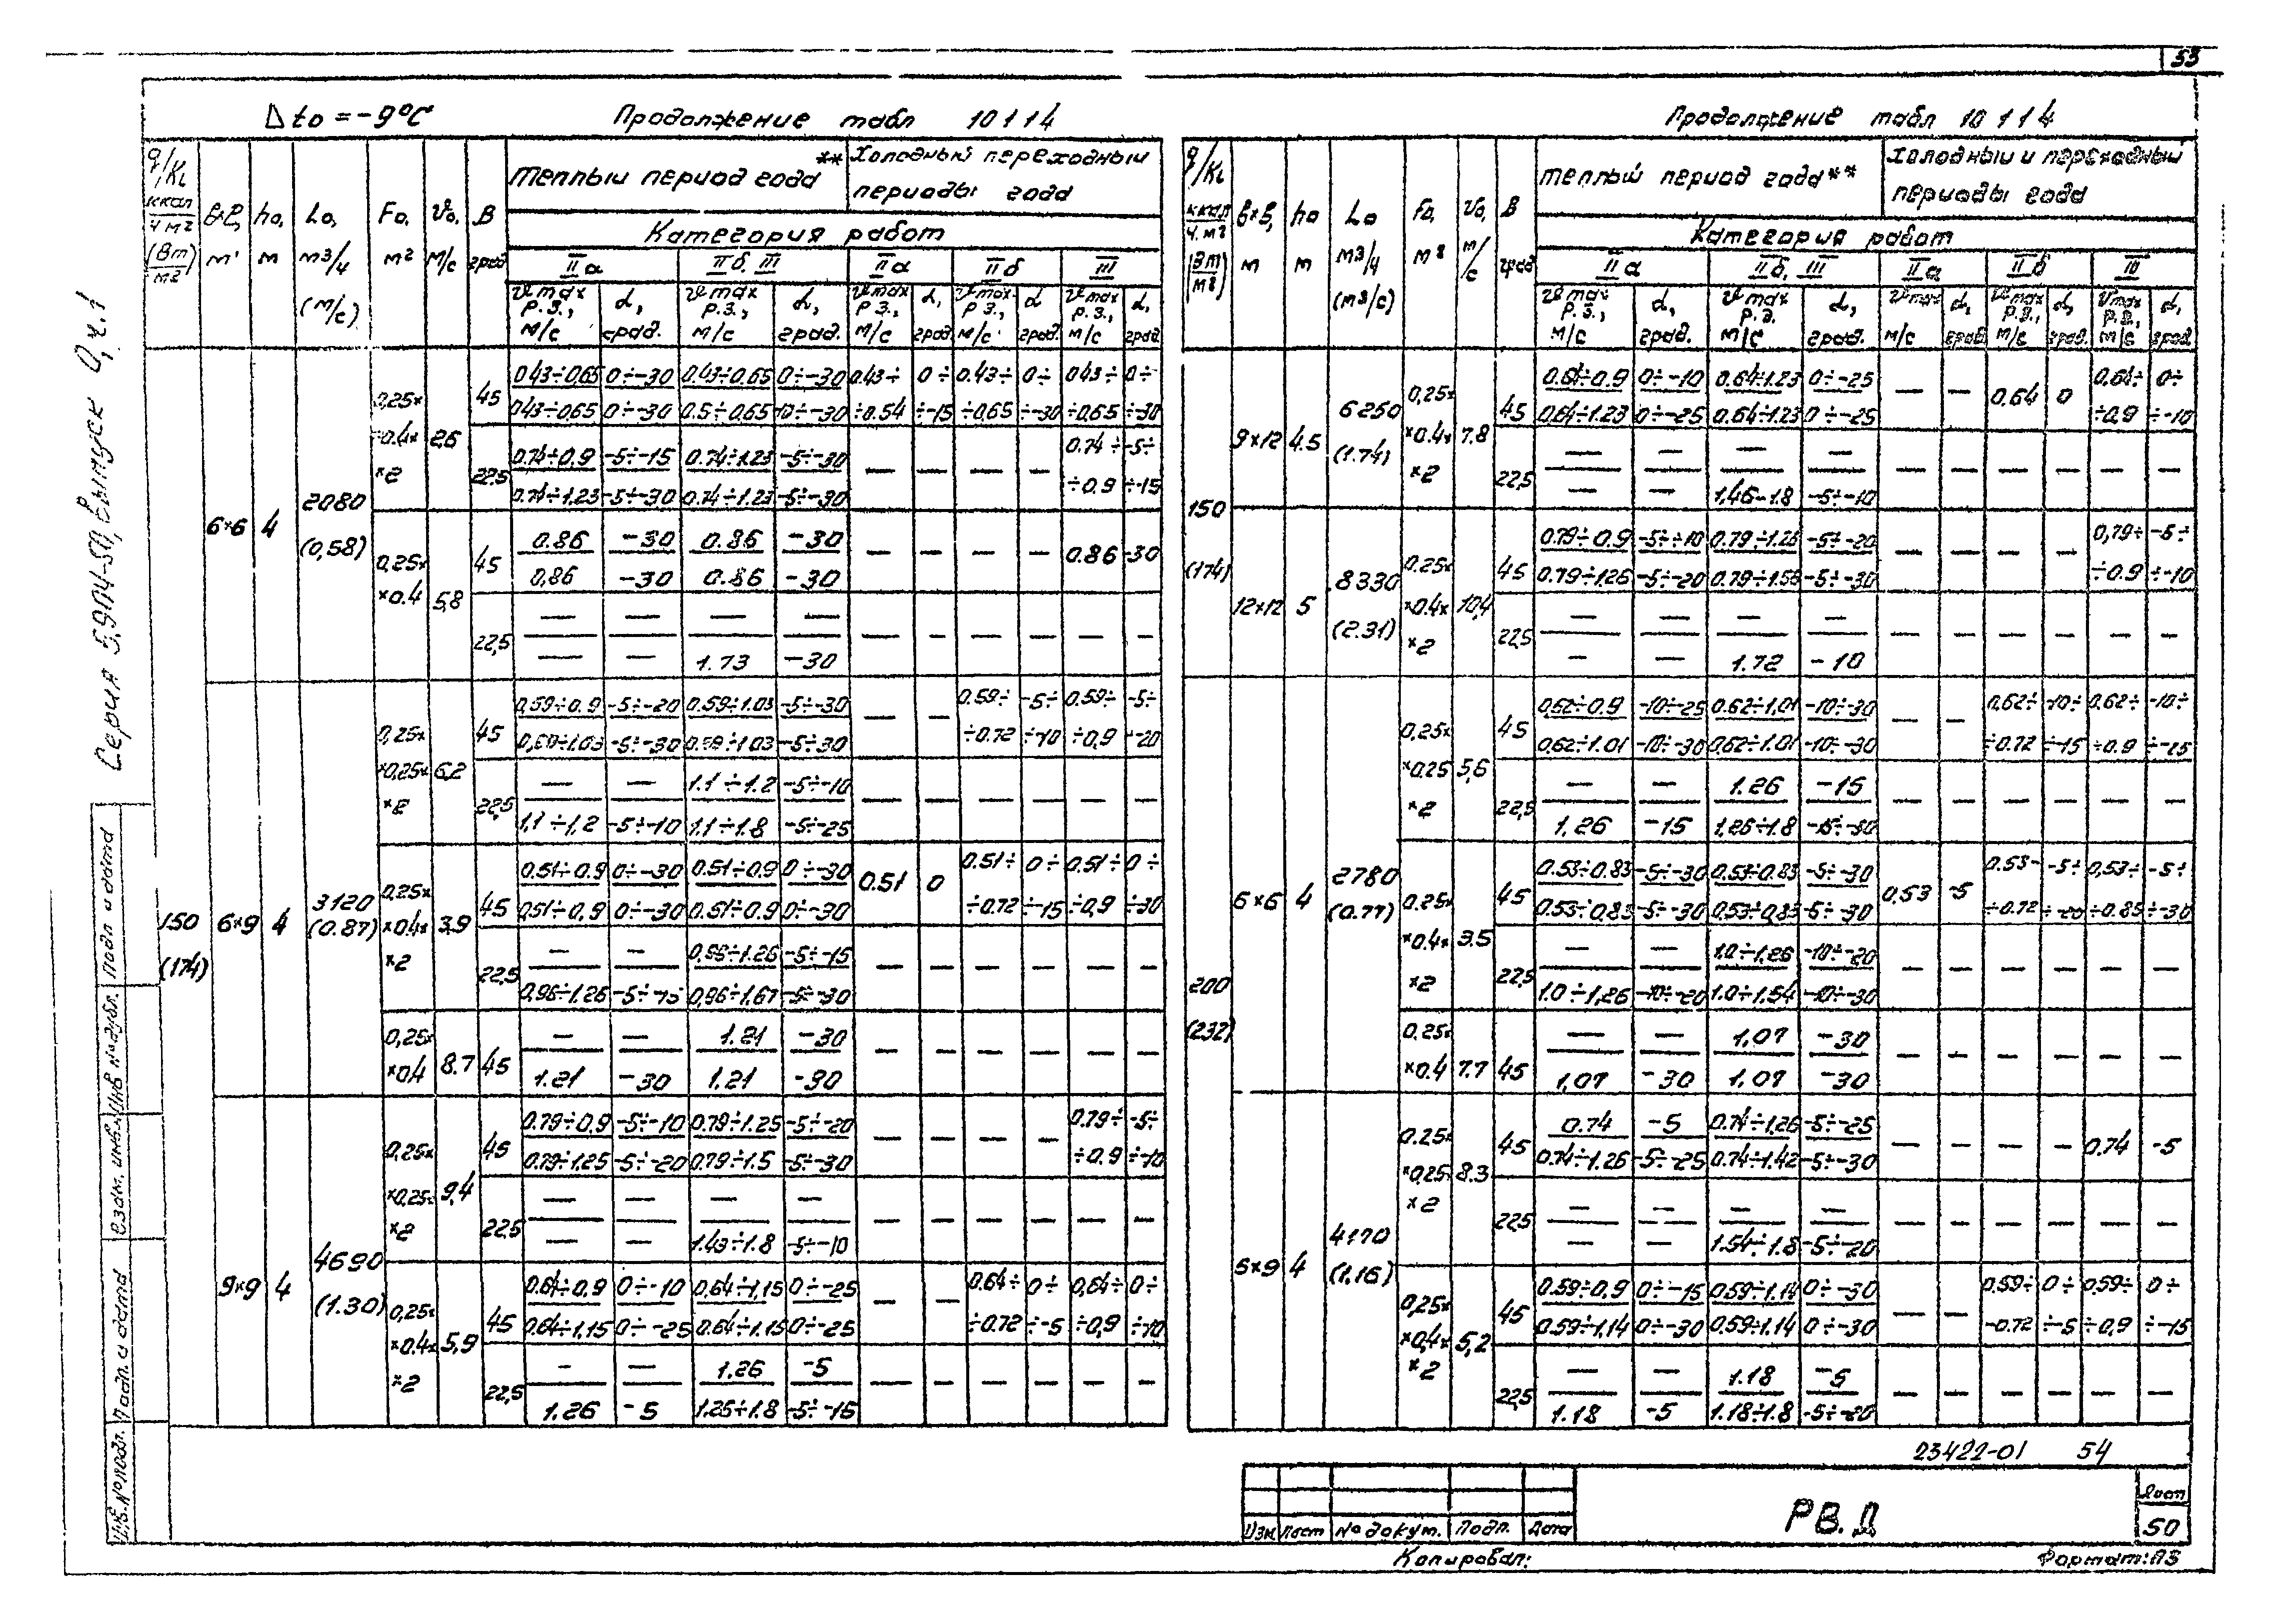 53
Δto = -9°C Продолжение табл 10 1 1 4
q/KL ккал/ч м² (Вт/м²) | в×в, м | ho, м | Lo, м³/ч (м/с) | Fo, м² | vo, м/с | B град | Теплый период года ** | Холодный переходный периоды года
Категория работ
IIа | IIб, III | IIа | IIб | III
vmax р.з., м/с | α, град. | vmax р.з., м/с | α, град. | vmax р.з., м/с | α, град | vmax р.з., м/с | α град. | vmax р.з., м/с | α, град
150 (174)
6×6 4 2080 (0,58)
0,25× ÷0.4× ×2 2,6
45 0.43÷0.65 0÷-30 0.43÷0.65 0÷-30 0.43÷ 0÷ 0.43÷ 0÷ 0.43÷ 0÷
0.43÷0.65 0÷-30 0.5÷0.65 -10÷-30 ÷0.54 ÷-15 ÷0.65 ÷-30 ÷0.65 ÷-30
22,5 0.74÷0.9 -5÷-15 0.74÷1.23 -5÷-30 — — — — 0.74÷ -5÷
0.74÷1.23 -5÷-30 0.74÷1.23 -5÷-30 ÷0.9 ÷-15
0,25× ×0.4 5,8
45 0.86 -30 0.86 -30 — — — — 0.86 -30
0,86 -30 0.86 -30
22,5 — — — — — — — — — —
— — 1.73 -30
6×9 4 3120 (0.87)
0,25× ×0,25× ×2 6,2
45 0.59÷0.9 -5÷-20 0.59÷1.03 -5÷-30 — — 0.59÷ -5÷ 0.59÷ -5÷
0,59÷1.03 -5÷-30 0.59÷1.03 -5÷30 ÷0.72 ÷-10 ÷0,9 -20
22,5 — — 1.1÷1.2 -5÷-10 — — — — — —
1,1÷1,2 -5÷-10 1.1÷1.8 -5÷-25
0,25× ×0.4× ×2 3,9
45 0.51÷0.9 0÷-30 0.51÷0,9 0÷-30 0.51 0 0.51÷ 0÷ 0.51÷ 0÷
0.51÷0,9 0÷-30 0.51÷0.9 0÷-30 ÷0.72 ÷-15 ÷0,9 ÷30
22,5 — — 0,96÷1.26 -5÷-15 — — — — — —
0,96÷1.26 -5÷-15 0,96÷1.67 -5÷-30
0,25× ×0,4 8.7
45 — — 1.21 -30 — — — — — —
1.21 -30 1.21 -30
9×9 4 4690 (1.30)
0,25× ×0,25× ×2 9,4
45 0.79÷0,9 -5÷-10 0.79÷1.25 -5÷-20 — — — — 0.79÷ -5÷
0.79÷1,25 -5÷-20 0.79÷1.5 -5÷-30 ÷0.9 ÷-10
22,5 — — — — — — — — — —
— — 1.43÷1.8 -5÷-10
0,25× ×0.4× ×2 5,9
45 0.64÷0,9 0÷-10 0,64÷1,15 0÷-25 — — 0.64÷ 0÷ 0,64÷ 0÷
0.64÷1,15 0÷-25 0.64÷1.15 0÷-25 ÷0.72 ÷-5 ÷0,9 ÷10
22,5 — — 1.26 -5 — — — — — —
1.26 -5 1.25÷1.8 -5÷-15
Продолжение табл 10 1 1 4
q/KL ккал/ч.м² (Вт/м²) | в×в, м | ho м | Lo м³/ч (м³/с) | Fo, м² | vo, м/с | B град | Теплый период года ** | Холодный и переходный периоды года
Категория работ
IIа | IIб, III | IIа | IIб | III
vmax р.з., м/с | α, град. | vmax р.з. м/с | α, град. | vmax м/с | α, град | vmax р.з., м/с | α, град. | vmax р.з., м/с | α, град
150 (174)
9×12 4.5 6250 (1.74)
0,25× ×0.4× ×2 7.8
45 0.64÷0.9 0÷-10 0.64÷1.23 0÷-25 — — 0.64 0 0,64÷ 0÷
0.64÷1.23 0÷-25 0.64÷1.23 0÷-25 ÷0,9 ÷-10
22,5 — — — — — — — — — —
— — 1,46-1.8 -5÷-10
12×12 5 8330 (2.31)
0.25× ×0.4× ×2 10,4
45 0.79÷0.9 -5÷÷10 0.79÷1.26 -5÷-20 — — — — 0,79÷ -5÷
0.79÷1.26 -5÷-20 0.79÷1.56 -5÷-30 ÷0.9 ÷-10
22,5 — — — — — — — — — —
— — 1.72 -10
200 (232)
6×6 4 2780 (0.77)
0,25× ×0,25 ×2 5,6
45 0,62÷0.9 -10÷-25 0.62÷1,01 -10÷-30 — — 0,62÷ -10÷ 0,62÷ -10÷
0,62÷1.01 -10÷-30 0,62÷1.01 -10÷-30 ÷0.72 ÷-15 ÷0.9 ÷-25
22,5 — — 1.26 -15 — — — — — —
1,26 -15 1,26÷1.8 -15÷-30
0,25× ×0.4× ×2 3.5
45 0.53÷0.83 -5÷-30 0,53÷0.83 -5÷-30 0,53 -5 0.53- -5÷ 0,53÷ -5÷
0.53÷0,83 -5÷-30 0.53÷0,83 -5÷-30 ÷0.72 ÷-20 ÷0.85 ÷-30
22,5 — — 1.0÷1,26 -10÷-20 — — — — — —
1.0÷1,26 -10÷-20 1.0÷1.54 -10÷-30
0,25× ×0.4 7.7
45 — — 1,07 -30 — — — — — —
1,07 -30 1,07 -30
6×9 4 4170 (1,16)
0.25× ×0,25× ×2 8.3
45 0.74 -5 0.74÷1,26 -5÷-25 — — — — 0,74 -5
0.74÷1.26 -5÷-25 0.74÷1.42 -5÷-30
22,5 — — — — — — — — — —
— — 1.54÷1.8 -5÷-20
0,25× ×0,4× ×2 5,2
45 0.59÷0,9 0÷-15 0,59÷1.14 0÷-30 — — 0,59÷ 0÷ 0,59÷ 0÷
0.59÷1,14 0÷-30 0,59÷1.14 0÷-30 -0.72 ÷-5 ÷0,9 ÷-15
22,5 — — 1.18 -5 — — — — — —
1.18 -5 1.18÷1.8 -5÷-20
23422-01 54
Изм Лист № докум. Подп. Дата
РВ.Д
Лист
50
Копировал:
Формат: А3
Серия 5.904-50, выпуск 0, ч.1
Инв. № подл. Подп. и дата Взам. инв. № Инв № дубл. Подп и дата